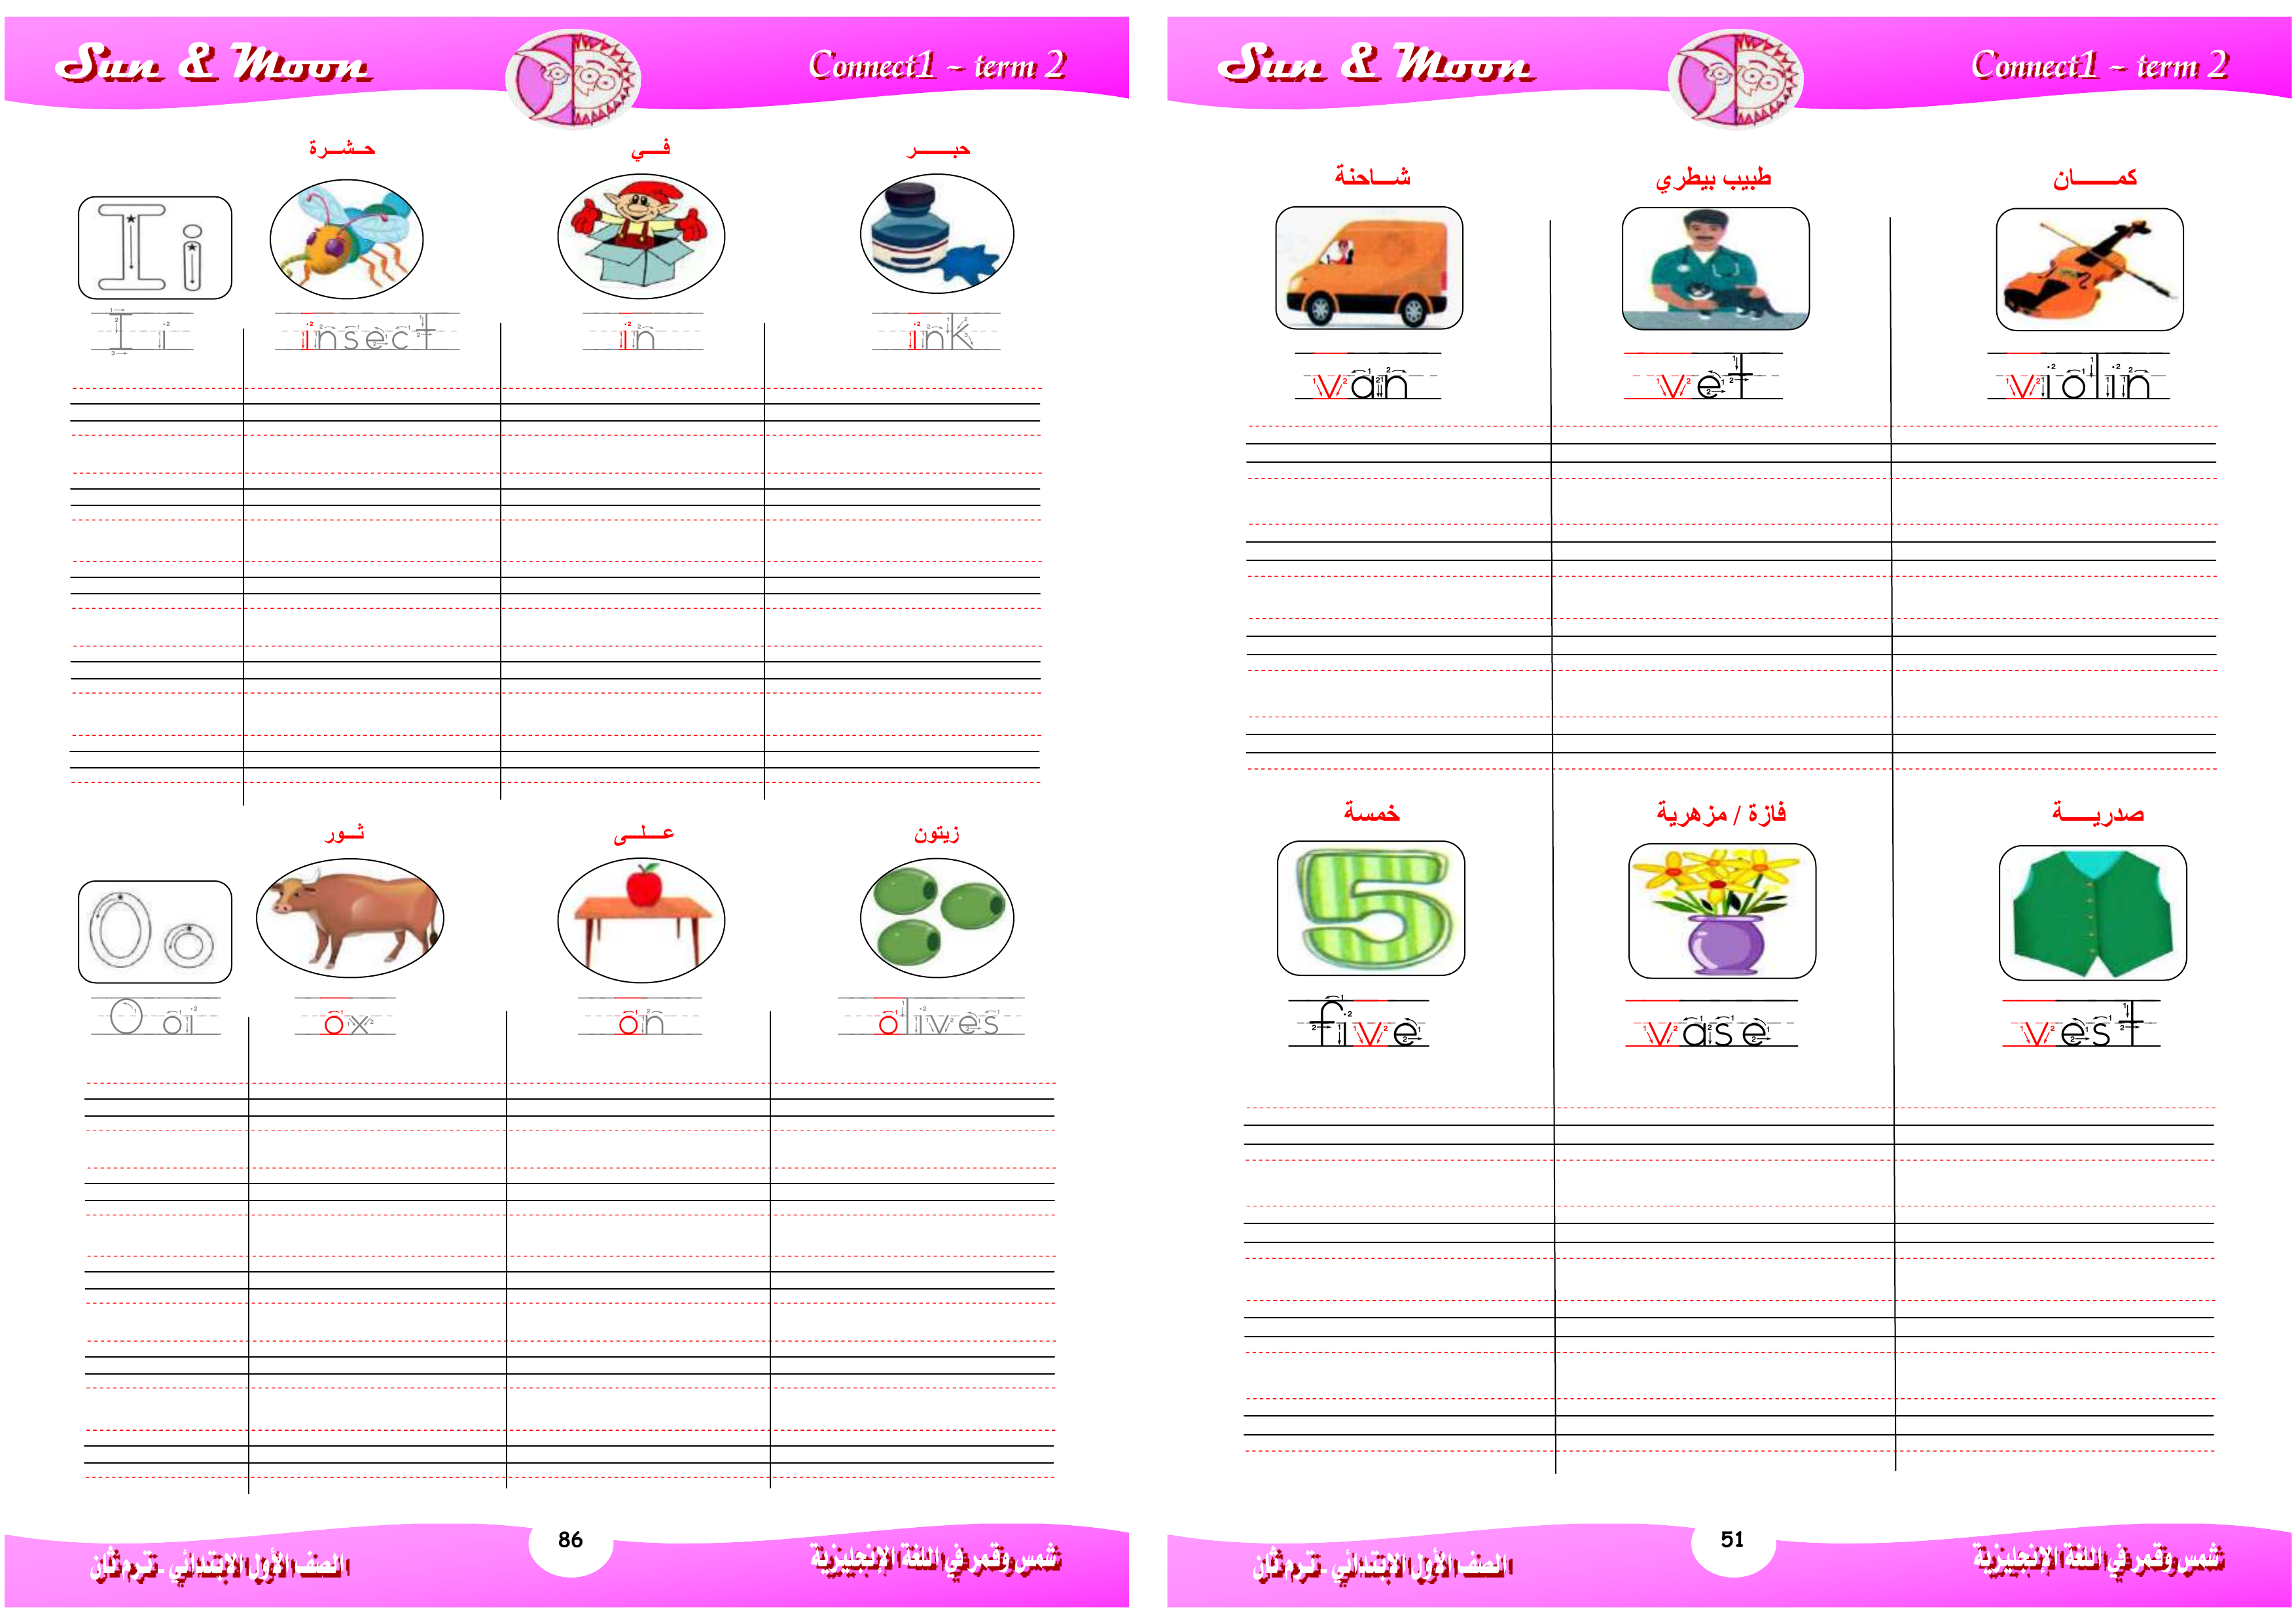 Sun & Moon
Connect1 ~ term 2
حـشـرة
فـي
حبـر
I i
I i
insect
in
ink
ثـور
عـلـى
زيتون
O o
O oi
ox
on
olives
الصف الأول الابتدائي - ترم ثان
86
شمس وقمر في اللغة الإنجليزية
Sun & Moon
Connect1 ~ term 2
شـاحنة
طبيب بيطري
كمـان
van
vet
violin
خمسة
فازة / مزهرية
صدريـة
5
five
vase
vest
الصف الأول الابتدائي - ترم ثان
51
شمس وقمر في اللغة الإنجليزية